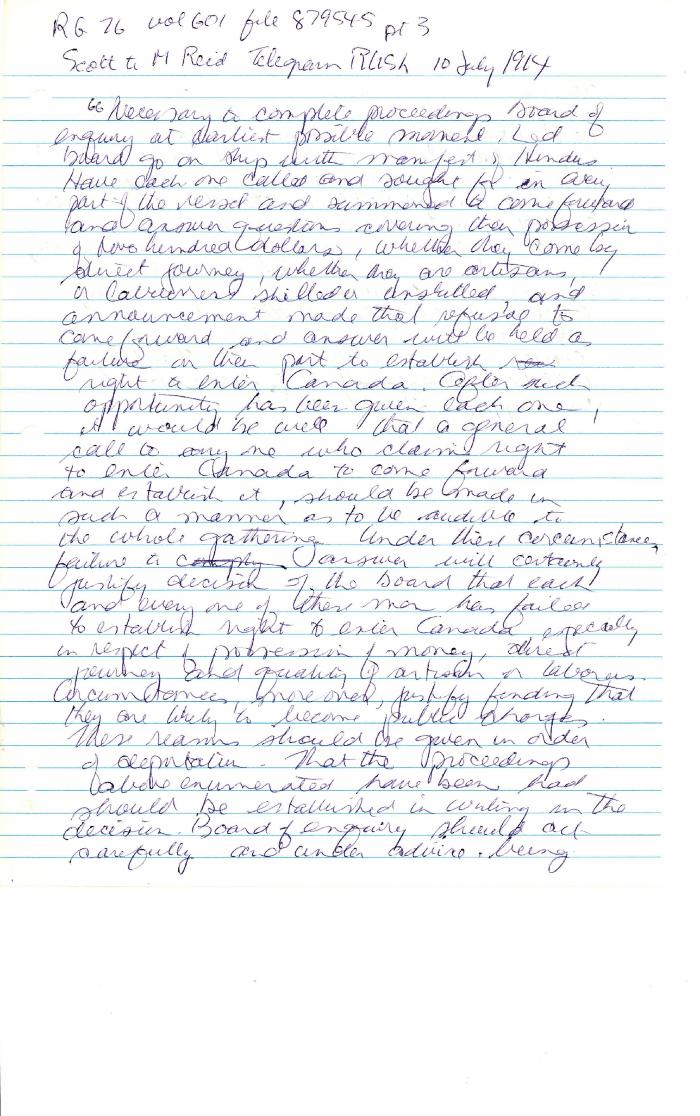 RG 76 vol 601 file 879545 pt 3
Scott to M Reid Telegram RUSH 10 July 1914
"Necessary to complete proceedings Board of
enquiry at earliest possible moment. Let
board go on ship with manifest of Hindus
Have each one called and sought for in every
part of the vessel and summoned to come forward
and answer questions covering their possession
of two hundred dollars, whether they come by
direct journey, whether they are artisans,
or labourers skilled or unskilled, and
announcement made that refusal to
come forward and answer will be held as
failure on their part to establish
right to enter Canada. After such
opportunity has been given each one,
it would be well that a general
call to any one who claims right
to enter Canada to come forward
and establish it, should be made in
such a manner as to be audible to
the whole gathering. Under these circumstances,
failure to answer will certainly
justify decision of the Board that each
and every one of these men has failed
to establish right to enter Canada especially
in respect of possession of money, direct
journey and quality of artisan or laborers.
Circumstances, moreover, justify finding that
they are likely to become public charges.
These reasons should be given in order
of deportation. That the proceedings
above enumerated have been had
should be established in writing in the
decision. Board of enquiry should act
carefully and under advice. being